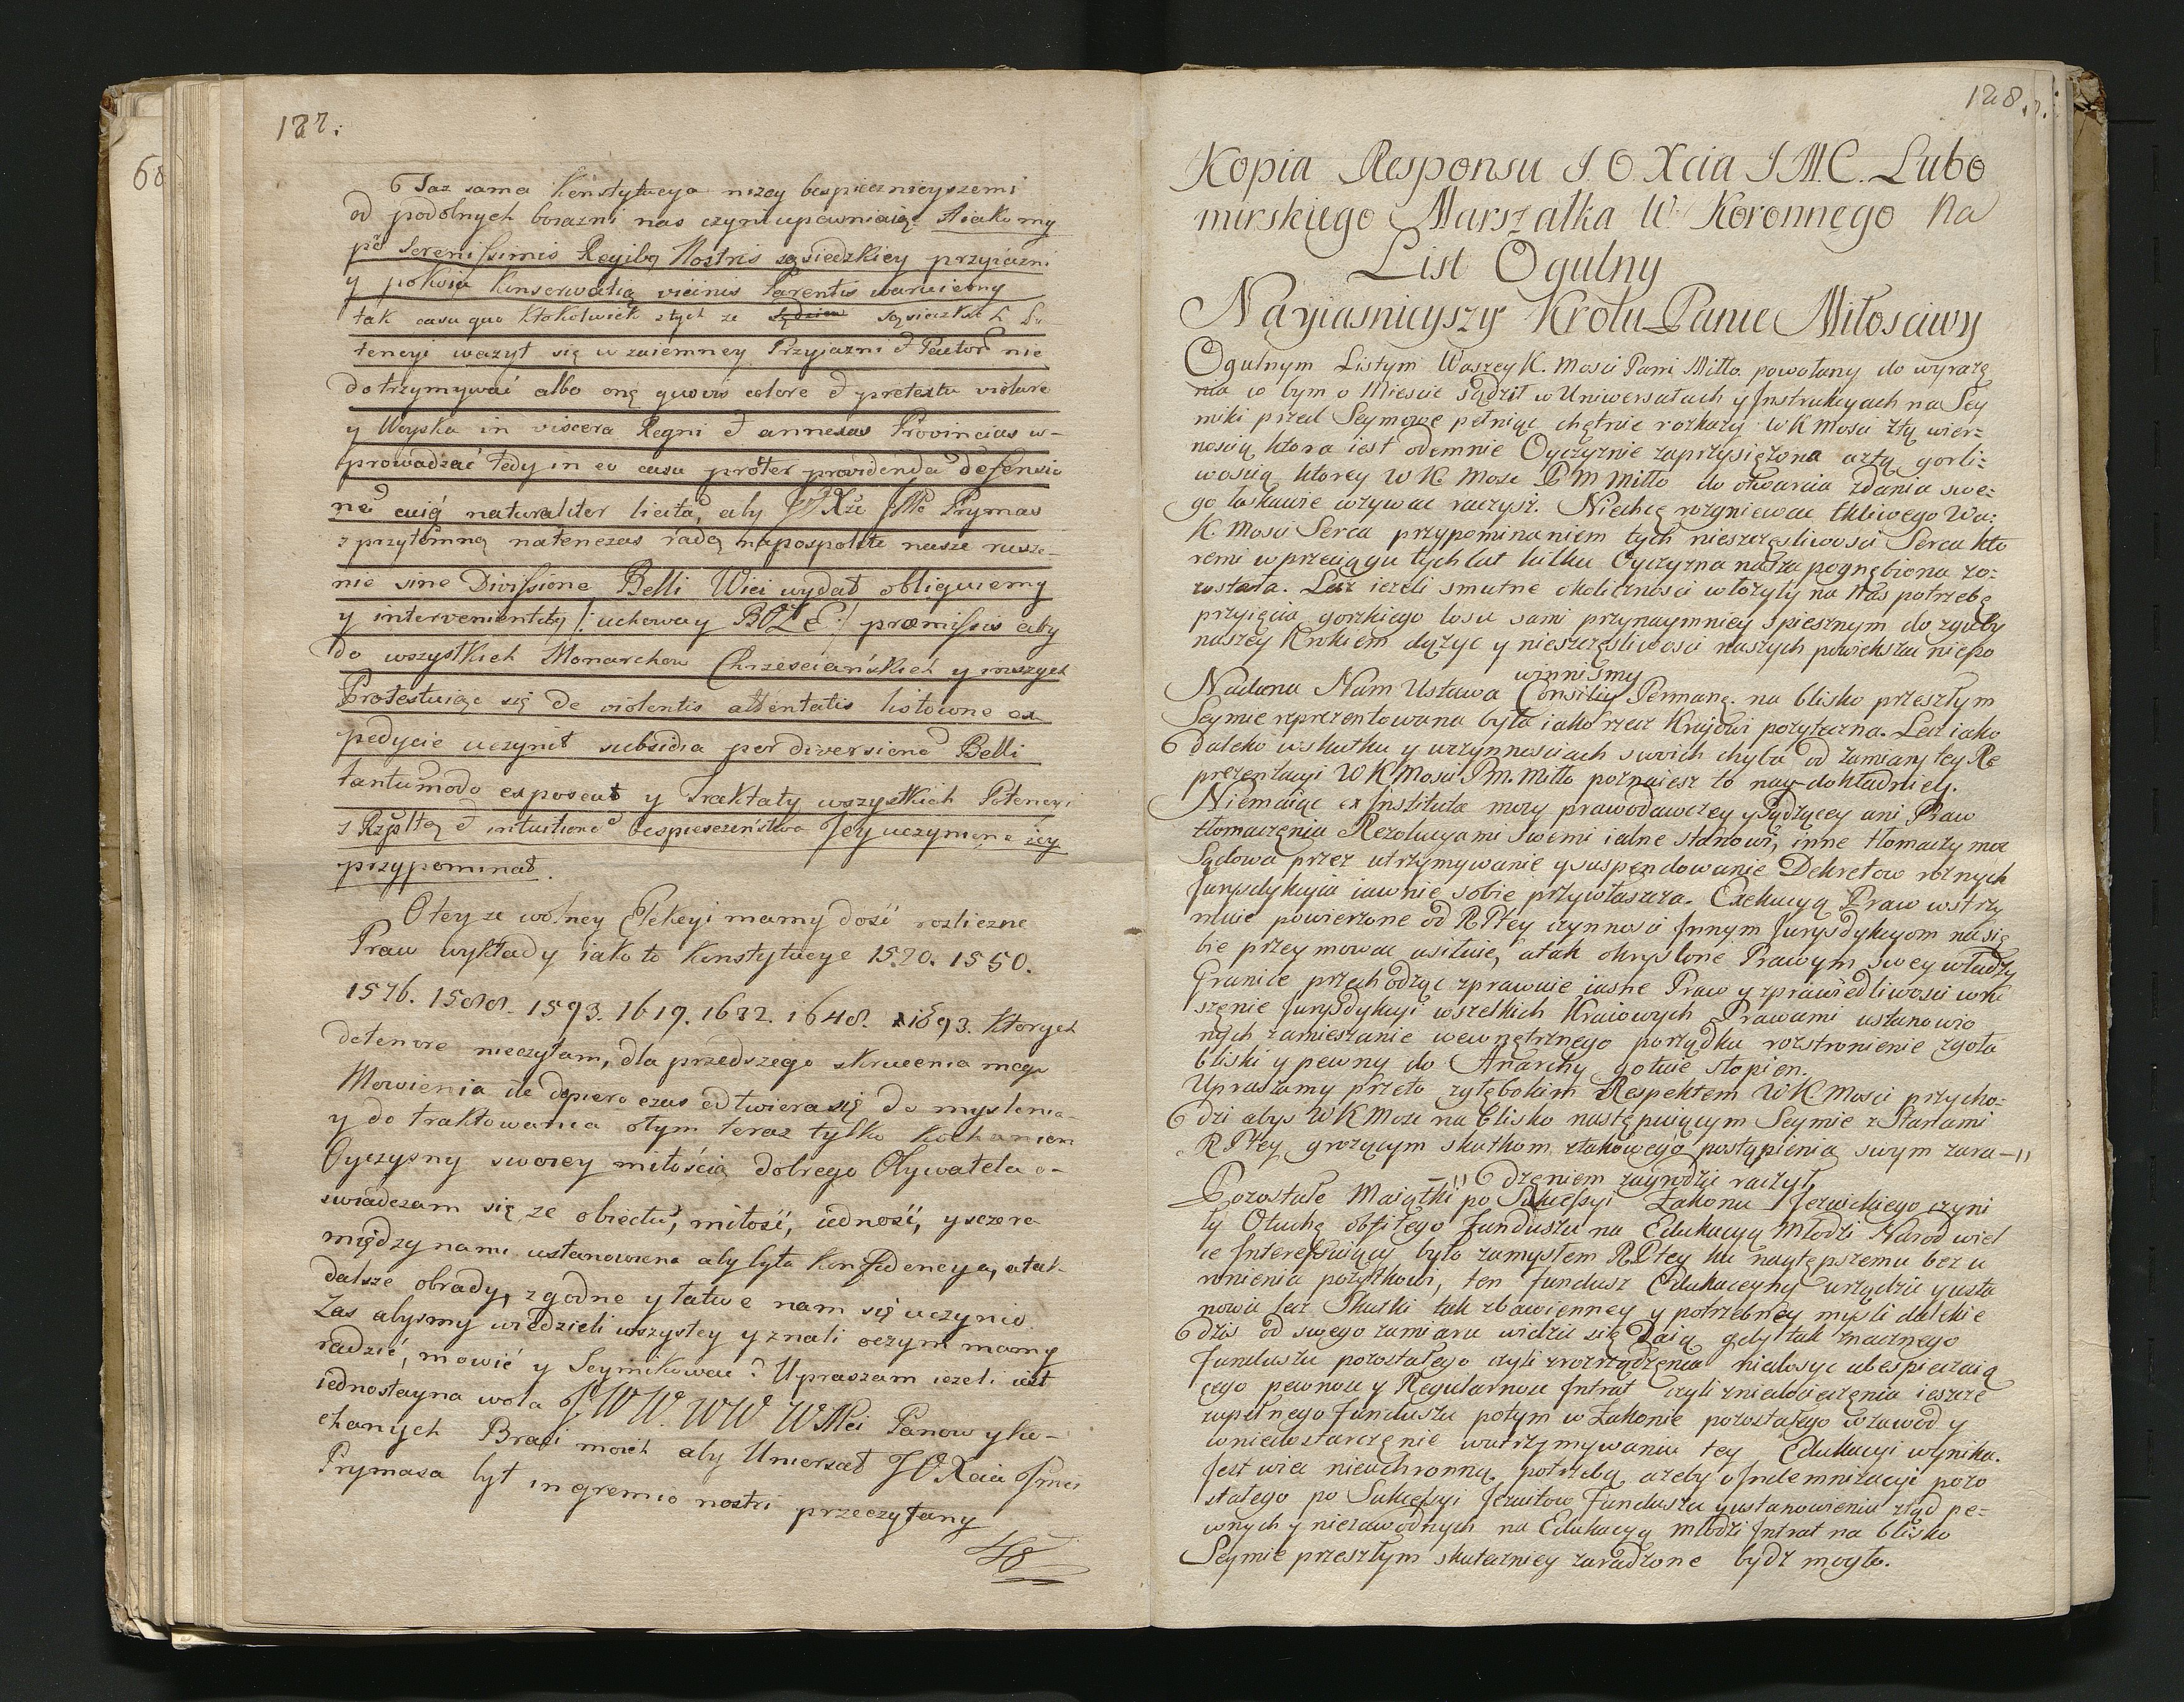 127.
Taz sama Konstytucya nizey bespiecznieyszemi
od podobnych boiazni nas czyni upewniaiąc A iako my
pro Serenissimis Regibq Nostris sąsiedzkiey przyiazni
y pokoiu Konserwatią vicinis Parentis waruiemy
tak casu quo Ktokolwiek z tych ze sąsiedzkich Po
tencyi wazył się w zaiemney Przyiazni et Pactor nie
dotrzymywać albo onę quovis colore et pretextu violare
y Woyska in viscera Regni et annexas Provincias w-
prowadzać tedy in eo casu providenda defensio
naturaliter licita, aby JO Xże JMc Prymas
z przytomną natenczas radą na pospolite nasze rusze-
nie sine Divissione Belli Wici wydał obliguiemy
y /: uchoway BOŻE :/ præmissis aby
do wszystkich Monarchow Chrzesciańskich y inszych
Protestuiąc się de violentis attentatis listowne ex
pedycie uczynił subsidia per diversione Belli
tantumodo exposcat y Traktaty wszystkich Potencyi
z Rzpltą et intuitione bespieczeństwa Jey uczynione iey
przypominał.
O teyze wolney Elekcyi mamy dość rozliczne
Praw wykłady iako to Konstytucye 1520. 1550.
1576. 1588. 1593. 1619. 1632. 1648. 1693. Ktorych
de tenore nieczytam, dla prędszego skrucenia mego
Mowienia ile dopiero czas odtwiera się do myslenia
y do traktowania o tym teraz tylko Kochaniem
Oyczyzny sworey miłością dobrego Obywatela o-
swiadczam się ze obiectu, miłość, iedność, y szcera
między nami ustanowiona aby była Konfidencya, a tak
dalsze obrady, zgodne y łatwe nam się uczynić.
Zas abysmy wiedzieli wszyscy y znali o czym mamy
radzić, mowić y Seymikować? Upraszam iezeli iest
iednostayna wola J.WW. WW WMci Panow y ko-
chanych Braci moich aby Uniersał JO Xcia Jmci
Prymasa był in gremio nostri przeczytany
128.
Kopia Responsu J. O Xcia J M.C. Lubo
mirskiego Marszałka W. Koronnego Na
List Ogulny
Nayiasnieyszy Krolu Panie Miłosciwy
Ogulnym Listym Waszey K. Mosci Pana Miłło. powołany do wyraże
nia co bym o Miescie sądził w Uniwersałach y Instrukcyach na Sey
miki przed Seymowe pełniąc chętnie rozkazy WK Mosci z tą wier=
noscią ktora iest odemnie Oyczyznie zaprzysięzona a z tą gorli=
woscią ktorey W K. Mosc P M Miłło do otwarcia zdania swe=
go łaskawie wzywac raczysz. Niechcę rozgniewac tkliwego Wa:
K. Mosci Serca przypominaniem tych nieszczęsliwosci Serca kto
remi w przeciągu tych lat kilku Oyczyzna nasza pognębiona zo=
została. Lecz iezeli smutne okolicznosci włozyły na Nas potrzebę
przyięcia gorzkiego losu sami przynaymniey spiesznym do zguby
naszey Krokiem dązyc y nieszczęsliwosci naszych powiekszac niepo
winnismy
Nadana Nam Ustawa Consilii Permane. na blisko przeszłym
Seymie reprezentowana była iako rzecz Kraiowi pozyteczna. Lecz iako
daleko w skutku y wczynnosciach swoich chyba od zamiaru tey Re
prezentacyi W K Mosc P. M. Miłło poznaiesz to nay-dokładniey.
Niemaiąc ex Instituta mocy prawodawczey y Sądzącey ani Praw
tłomaczęnia Rezolucyami swemi iedne stanowi, inne tłomaczy moc
Sądową przez utrzymywanie y suspendowanie Dekretow roznych
Jurysdykcyia iawnie sobie przywłaszcza. Exekucyą Praw wstrzy
muie powierzone od RPłey czynnosci Innym Jurysdykcyom na się
bie przeymować usiłuie, a tak okryslone Prawym swey władzy
Granice przechodząc zprawuie iasne Praw y zprawiedliwosci wnr
szęnie Jurysdykcyi wszelkich Kraiowych Prawami ustanowio
nych zamieszanie wewnętrznego porządku rozstronienie zgoła
bliski y pewny do Anarchy gotuie stopien.
Upraszamy przeto zgłębokim Respektem WK Mosci przycho=
dzi abys W K Mosc na blisko następuiącym Seymie z Stanami
RPłey grozącym skutkom z takowego postąpienia swym zara-"
-" dzeniem zagrodzic raczył.
Pozostałe Maiątki po Sukcessyi Zakonu Jezuickiego czyni
ły Otuchę obfitego funduszu na Edukacyą Młodzi Narod wiel
ce Interessuiący było zamysłem RPłey ku naylępszemu bez u
ronienia pozytkowi, ten fundusz Edukacyiny urządzic y usta
nowic Lecz Skutki tak zbawienney y potrzebney mysli dalekie
dzis od swego zamiaru widziec się Daią gdy tak znacznego
funduszu pozostałego czyli zrozrządzenia niedosyc ubespieczaią
cego pewnosc y Regularnosc Intrat czyli zniedocieczęnia ieszcze
zupełnego funduszu potym w Zakonie pozostałego wzawod y
w niedostarczęnie wutrzymywaniu tey Edukacyi wynika.
Jest wiec nieuchronną potrzebą azeby o Indemnizacyi pozo
stałego po Sukcessyi Jezuitow Funduszu y ustanowieniu ztąd pe=
wnych y niezawodnych na Edukacyą młodzi Intrat na blisko
Seymie przeszłym skuteczniey zaradzone bydz mogło.